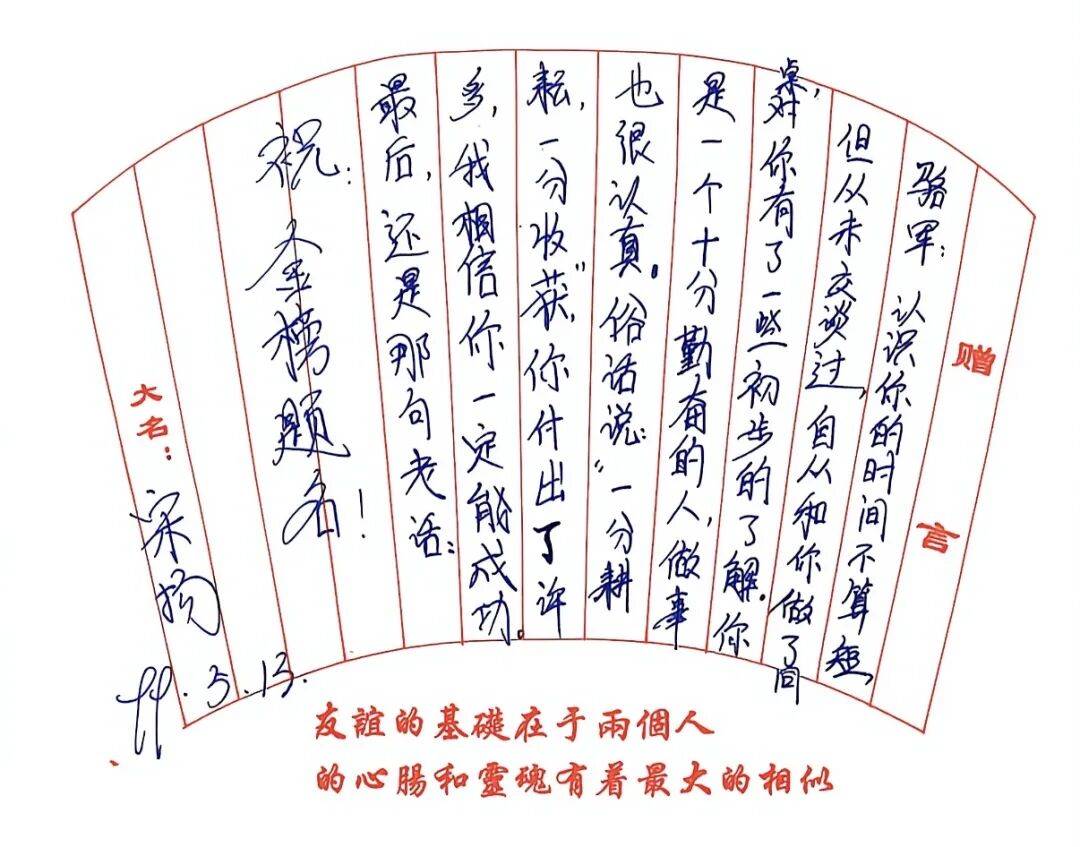 赠言
骆军：认识你的时间不算短，
但从未交谈过，自从和你做了同
桌，对你有了一些初步的了解。你
是一个十分勤奋的人，做事
也很认真。俗话说：“一分耕
耘，一分收获，”你付出了许
多，我相信你一定能成功。
最后，还是那句老话：
祝：金榜题名！
大名：宋扬
99.5.13.
友誼的基礎在于兩個人
的心腸和靈魂有着最大的相似